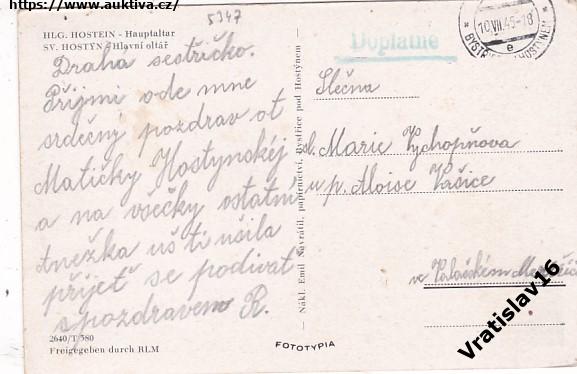 https://www.auktiva.cz/
5347
HLG. HOSTEIN - Hauptaltar
SV. HOSTÝN - Hlavní oltář
Drahá sestřičko.
Přijmi ode mne
srdečný pozdrav ot
Matičky Hostynskéj
a na všečky ostatní
Anežka uš ti ušila
přijeť se podivať
s pozdravem R.
2640/T 580
Freigegeben durch RLM
— Nákl. Emil Navrátil, papírnictví, Bystřice pod Hostýnem
FOTOTYPIA
Doplatne
10.VII.45-18
BYSTŘICE HOSTÝNEM
e
Slečna
Marie Vychopňova
u p. Aloise Vašice
ve Valašském
Vratislav16